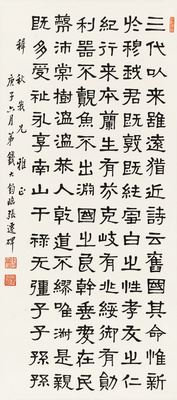 三代以來雖遠猶近詩云舊國其命惟新
於穆我君既敦既純雪白之性孝友之仁
紀行來本蘭生有芬克岐有兆綏御有勛
利器不覿魚不出淵國之良幹垂愛在民
蔽沛棠樹溫溫恭人乾道不繆唯淑是親
既多受祉永享南山干祿无彊子子孫孫
稺秋我兄雅正
庚子六月弟錢大鈞臨張遷碑